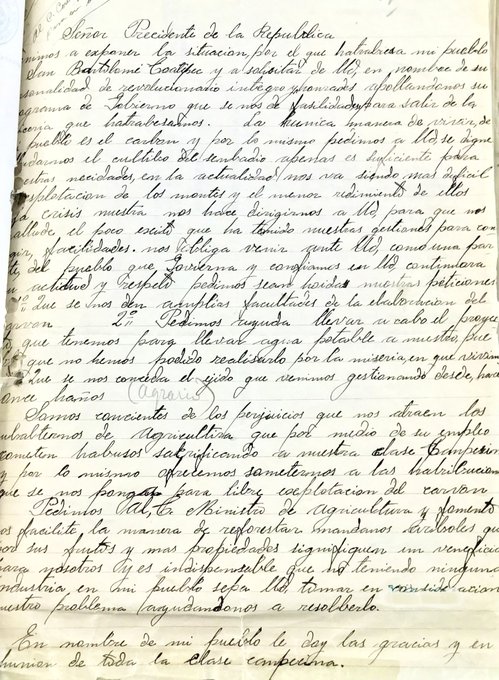 Señor Presidente de la Republica
nimos a exponer la situacion, por el que hatrabeza mi pueblo
San Bartolomé Coatepec y a solisitar de Ud, en nombre de su
sonalidad de revolucionario integro y honrados apollandonos su
grama de Gobierno que se nos de fasilidades para salir de la
que hatrabesamos. La hunica manera de vivir, de
pueblo es el carbon y por lo mismo pedimos a Ud, se digne
udarnos el cultibo del senbadio apenas es suficiente para
estras necidades, en la actualidad nos va siendo mas dificil
esplotacion de los montes y el menor redimiento de ellos
la crisis nuestra nos hace dirigirnos a Ud, para que nos
el poco escito que ha tenido nuestras gestiones para con
gir, facilidades. nos obliga venir ante Ud, como una par
te, del pueblo que Govierna y confiamos en Ud continuara
su actitud y respeto pedimos sean hoidas nuestras peticiones
1º Que se nos den amplias facultades de la elaboracion del
carvon 2º Pedimos ayuda llevar a cabo el proyec
que tenemos para llevar agua potable a nuestro, pue
que no hemos podido realisarlo por la miseria, en que vivimos
Que se nos conceda el ejido que venimos gestionando desde, hace
once haños (agrario)
Samos concientes de los perjuicios que nos atraen los
subalternos de Agricultura que por medio de su empleo
cometen habusos sacrificando a nuestra clase Canpesina
y por lo mismo ofrecemos someternos a las
que se nos pongan para libre explotacion del carvon.
Pedimos Al C. Ministro de Agricultura y fomento
nos facilite la manera de reforestar mandanos arboles que
por sus frutos y mas propiedades signifiquen un veneficio
para nosotros y es indispensable que no teniendo ninguna
industria en mi pueblo sepa Ud, tomar en consideracion
nuestro problema ayudandonos a resolberlo.
En nombre de mi pueblo le doy las gracias y en
hunion de toda la clase campecina.